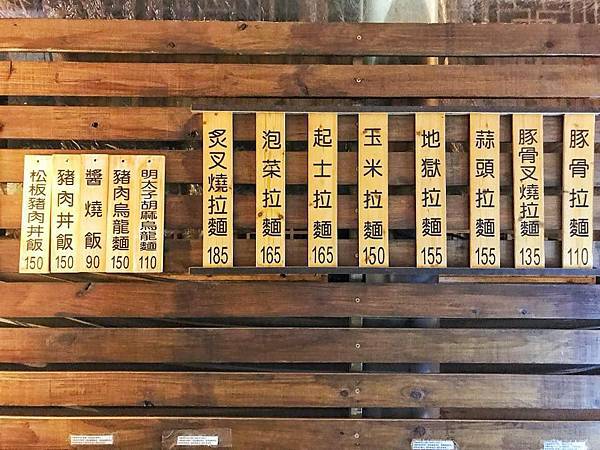 豚骨拉麵
110
豚骨叉燒拉麵
135
蒜頭拉麵
155
地獄拉麵
155
玉米拉麵
150
起士拉麵
165
泡菜拉麵
165
炙叉燒拉麵
185
明太子胡麻烏龍麵
110
豬肉烏龍麵
150
醬燒飯
90
豬肉丼飯
150
松板豬肉丼飯
150